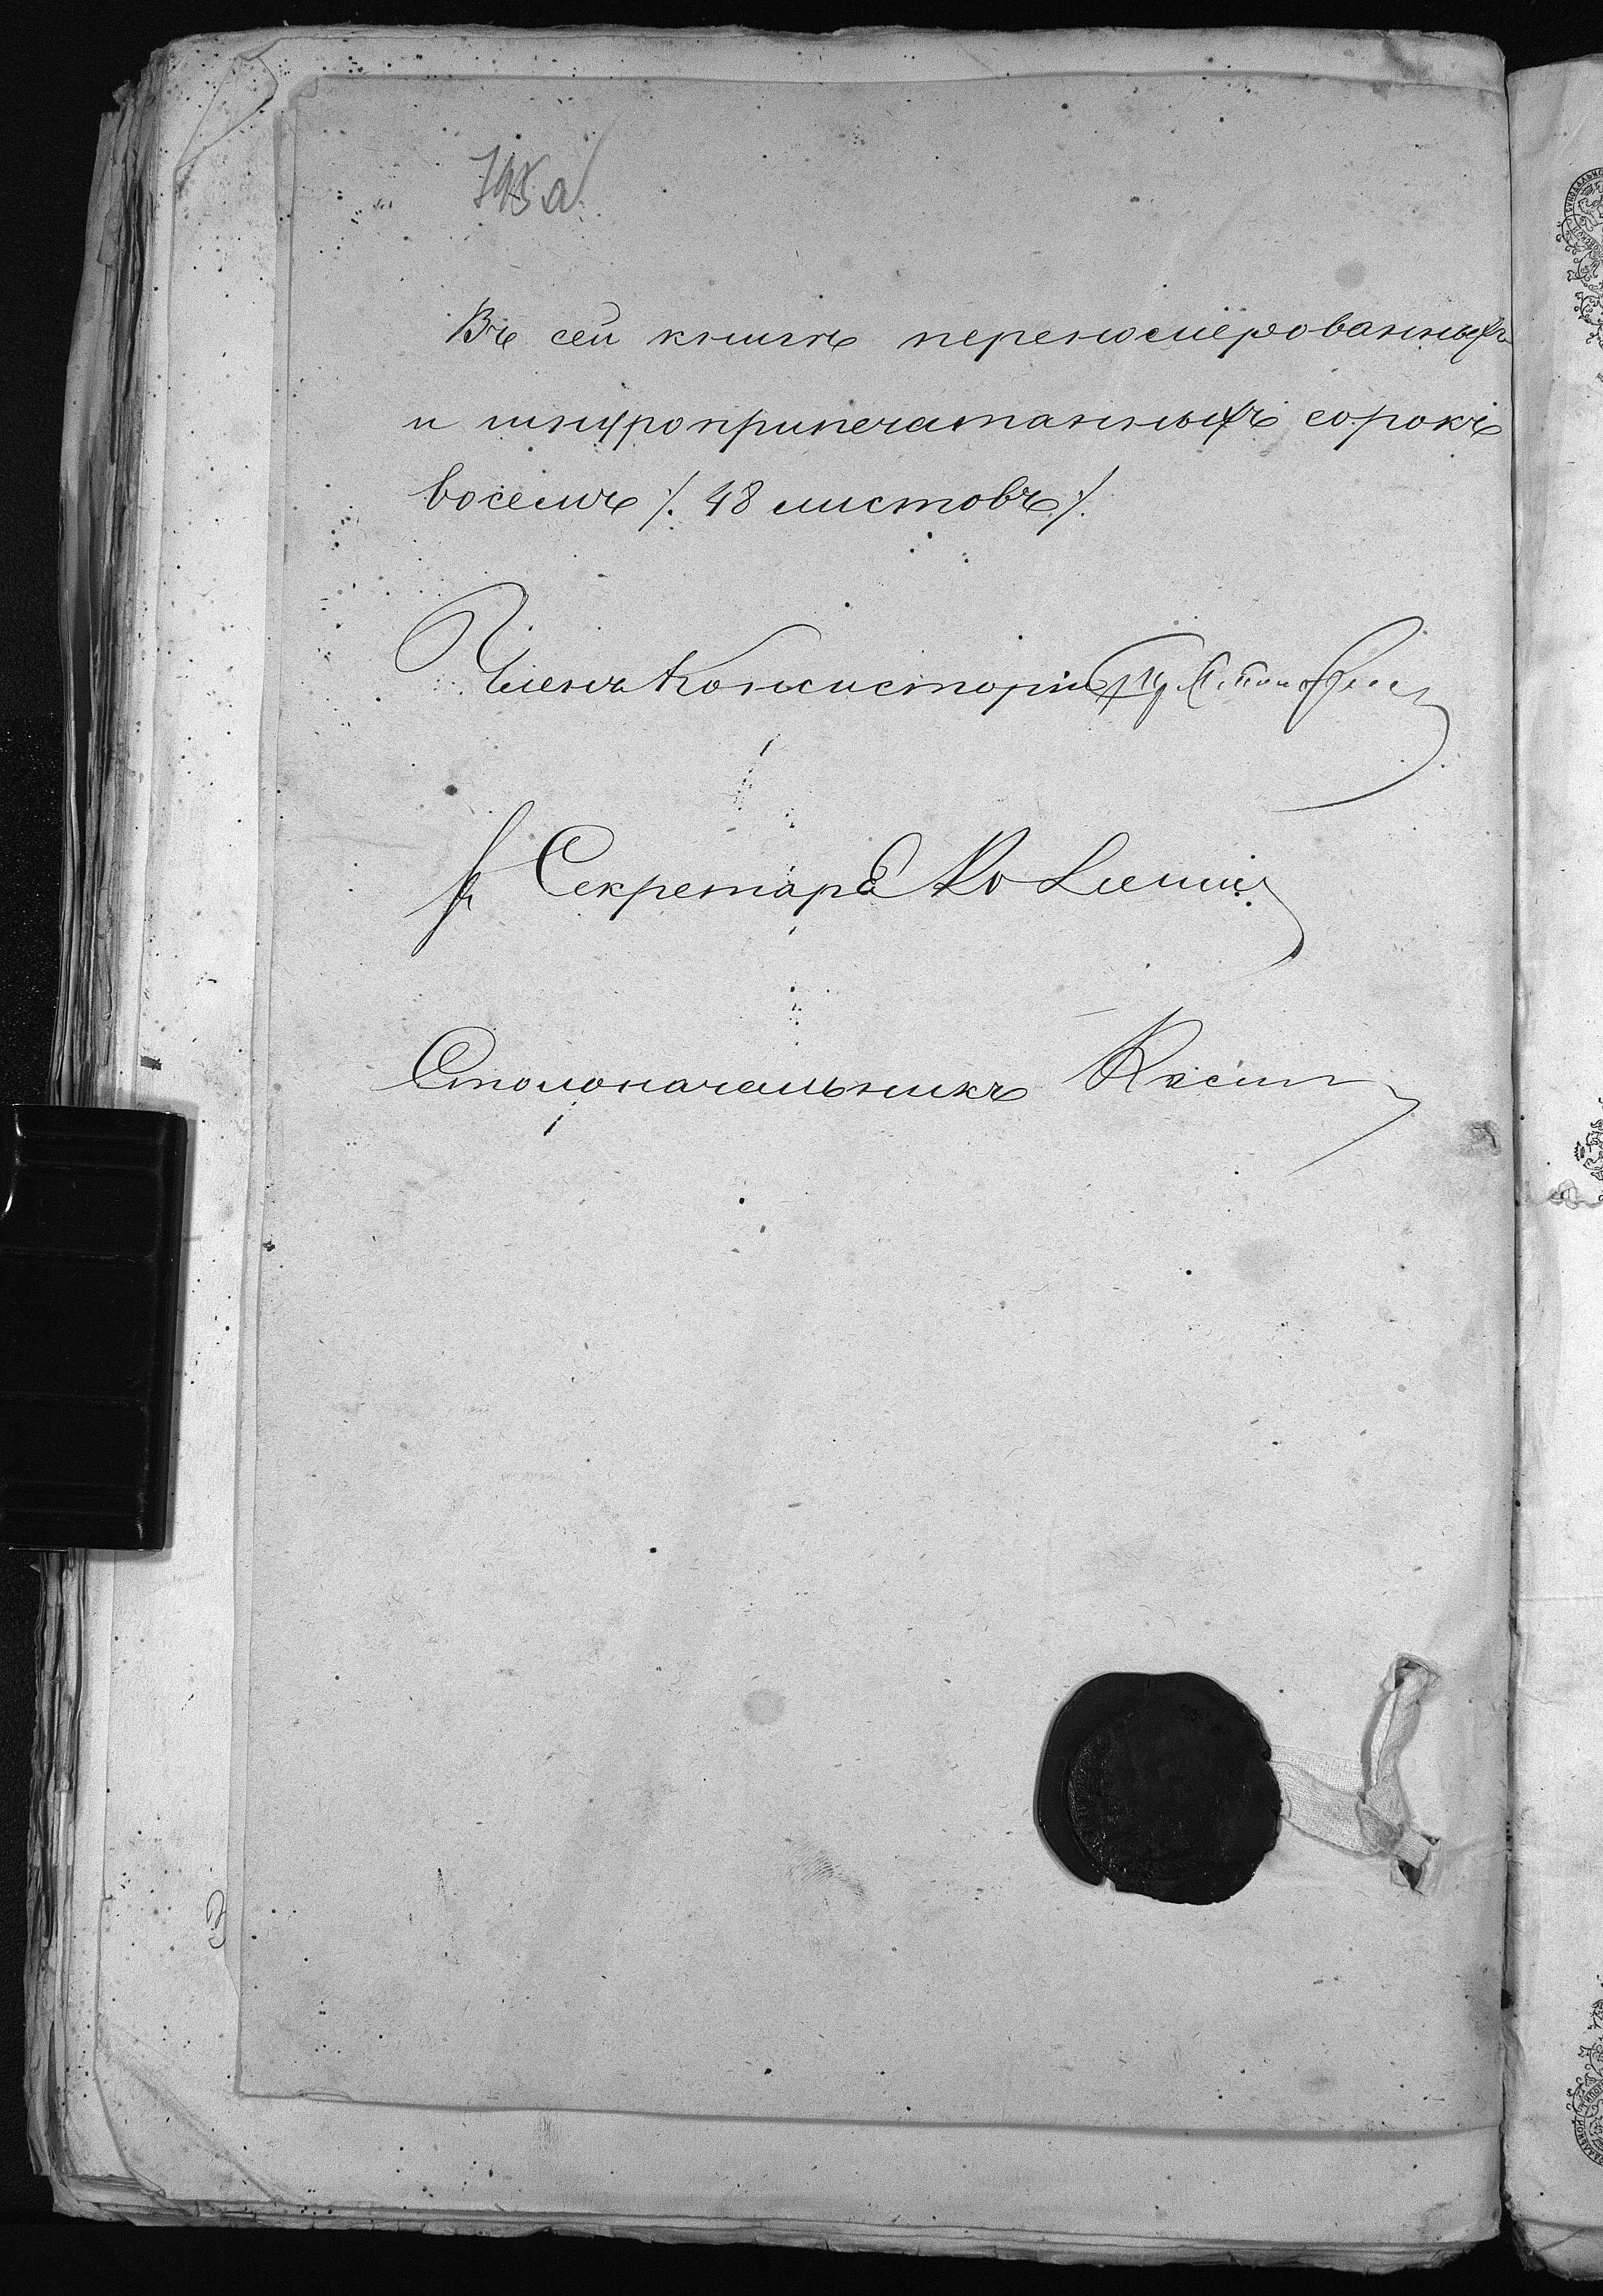 795 а
Въ сей книгѣ перенюмерованныхъ
и шнуроприпечатанныхъ сорокъ
восемь /. 48 листовъ /.
Членъ Консисторіи
Секретарь
Столоначальникъ